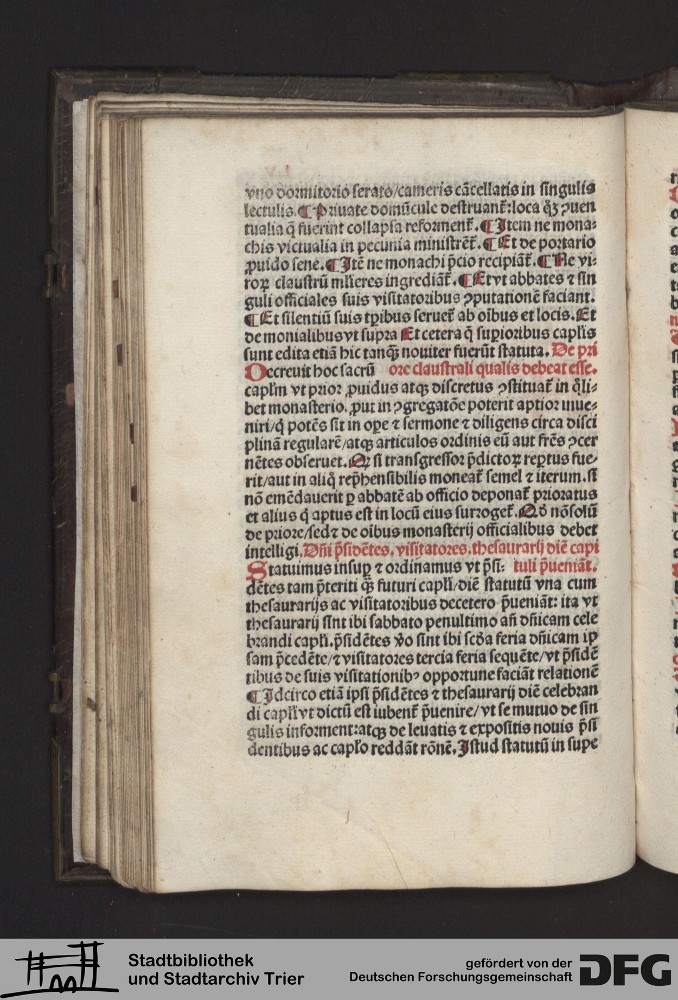 vno dormitorio serato/cameris cãcellatis in singulis
lectulis. ¶ Priuate domũcule destruanť: loca qꝫ ꝯuen
tualia q̃ fuerint collapsa reformenť. ¶ Item ne mona-
chis victualia in pecunia ministrẽť. ¶ Et de portario
ꝓuido sene. ¶ Itẽ ne monachi p̃cio recipiãť. ¶ Ne vi-
roꝝ claustrũ ml̃ieres ingrediãť. ¶ Et vt abbates ⁊ sin
guli officiales suis visitatoribus ꝯputationẽ faciant.
¶ Et silentiũ suis tp̃ibus serueť ab oĩbus et locis. Et
de monialibus vt supra Et cetera q̃ sup̃ioribus capľis
sunt edita etiã hic tanqꝫ nouiter fuerũt statuta. De pri
Decreuit hoc sacrũ ore claustrali qualis debeat esse.
capľm vt prior ꝓuidus atqꝫ discretus ꝯstituať in q̃li-
bet monasterio. ꝓut in ꝯgregatõe poterit aptior inue-
niri/q̃ potẽs sit in oꝑe ⁊ sermone ⁊ diligens circa disci
plinã regularẽ/atqꝫ articulos ordinis eũ aut frẽs ꝯcer
nẽtes obseruet. Qꝛ si transgressor p̃dictoꝝ reꝑtus fue-
rit/aut in aliq̃ rep̃hensibilis moneať semel ⁊ iterum. si
nõ emẽdauerit ꝑ abbatẽ ab officio deponať prioratus
et alius q̃ aptus est in locũ eius surrogeť. Qď nõ solũ
de priore/sed ⁊ de oĩbus monasterij officialibus debet
intelligi. Dñi p̃sidẽtes. visitatores. thesaurarij diẽ capi
Statuimus insuꝑ ⁊ ordinamus vt p̃si- tuli p̃ueniãt.
dẽtes tam p̃teriti qꝫ futuri capľi/diẽ statutũ vna cum
thesaurarijs ac visitatoribus decetero p̃ueniãt: ita vt
thesaurarij sint ibi sabbato penultimo añ dñicam cele
brandi capľi. p̃sidẽtes ꝟo sint ibi scďa feria dñicam ip̃
sam p̃cedẽte/⁊ visitatores tercia feria sequẽte/vt p̃sidẽ
tibus de suis visitationibꝰ opportune faciãt relationẽ
¶ Idcirco etiã ipsi p̃sidẽtes ⁊ thesaurarij diẽ celebran
di capľi vt dictũ est iubenť p̃uenire/vt se mutuo de sin
gulis informent: atqꝫ de leuatis ⁊ expositis nouis p̃si
dentibus ac capľo reddãt rõnẽ. Istud statutũ in supe
Stadtbibliothek
und Stadtarchiv Trier
gefördert von der
Deutschen Forschungsgemeinschaft
DFG